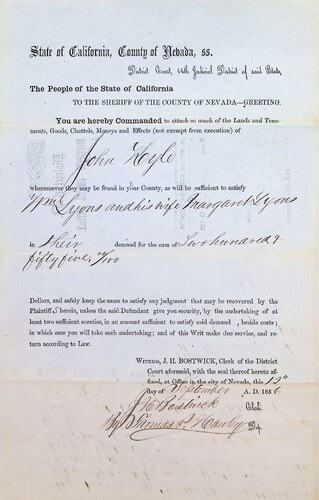 State of California, County of Nevada, ss.
District Court, 14th Judicial District of said State,
The People of the State of California
TO THE SHERIFF OF THE COUNTY OF NEVADA—GREETING.
You are hereby Commanded to attach so much of the Lands and Tene-
ments, Goods, Chattels, Moneys and Effects (not exempt from execution) of
John Kyle
wheresoever they may be found in your County, as will be sufficient to satisfy
Wm Lyons and his wife Margaret Lyons
in their demand for the sum of Two hundred &
fifty five,
Dollars, and safely keep the same to satisfy any judgment that may be recovered by the
Plaintiff s herein, unless the said Defendant give you security, by the undertaking of at
least two sufficient sureties, in an amount sufficient to satisfy said demand, beside costs;
in which case you will take such undertaking; and of this Writ make due service, and
return according to Law.
WITNESS, J. H. BOSTWICK, Clerk of the District
Court aforesaid, with the seal thereof hereto af-
fixed, at Office in the city of Nevada, this 12th
day of September A. D. 1856
J H Bostwick Clerk
By Thomas P. Hawley Dep.